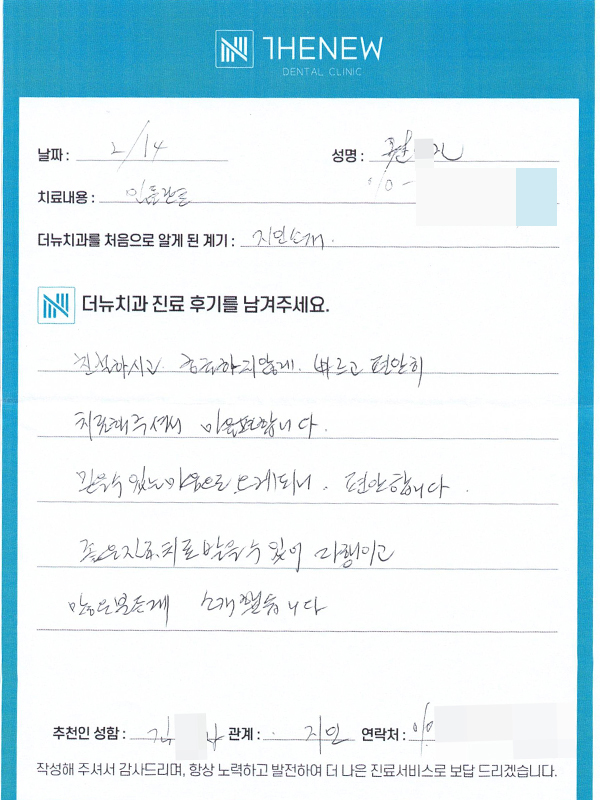 THENEW
DENTAL CLINIC
날짜 : 2/14
성명 :
치료내용 : 임플란트
010-
더뉴치과를 처음으로 알게 된 계기 : 지인소개.
더뉴치과 진료 후기를 남겨주세요.
친절하시고. 빠르고 편안히
치료해주셔서 마음편합니다.
믿을수 있는 마음으로 오게되니. 편안합니다.
좋은진료.치료 받을수 있어 다행이고
많은분들게 소개했습니다
추천인 성함 : 김 관계 : 지인 연락처 : 010
작성해 주셔서 감사드리며, 항상 노력하고 발전하여 더 나은 진료서비스로 보답 드리겠습니다.